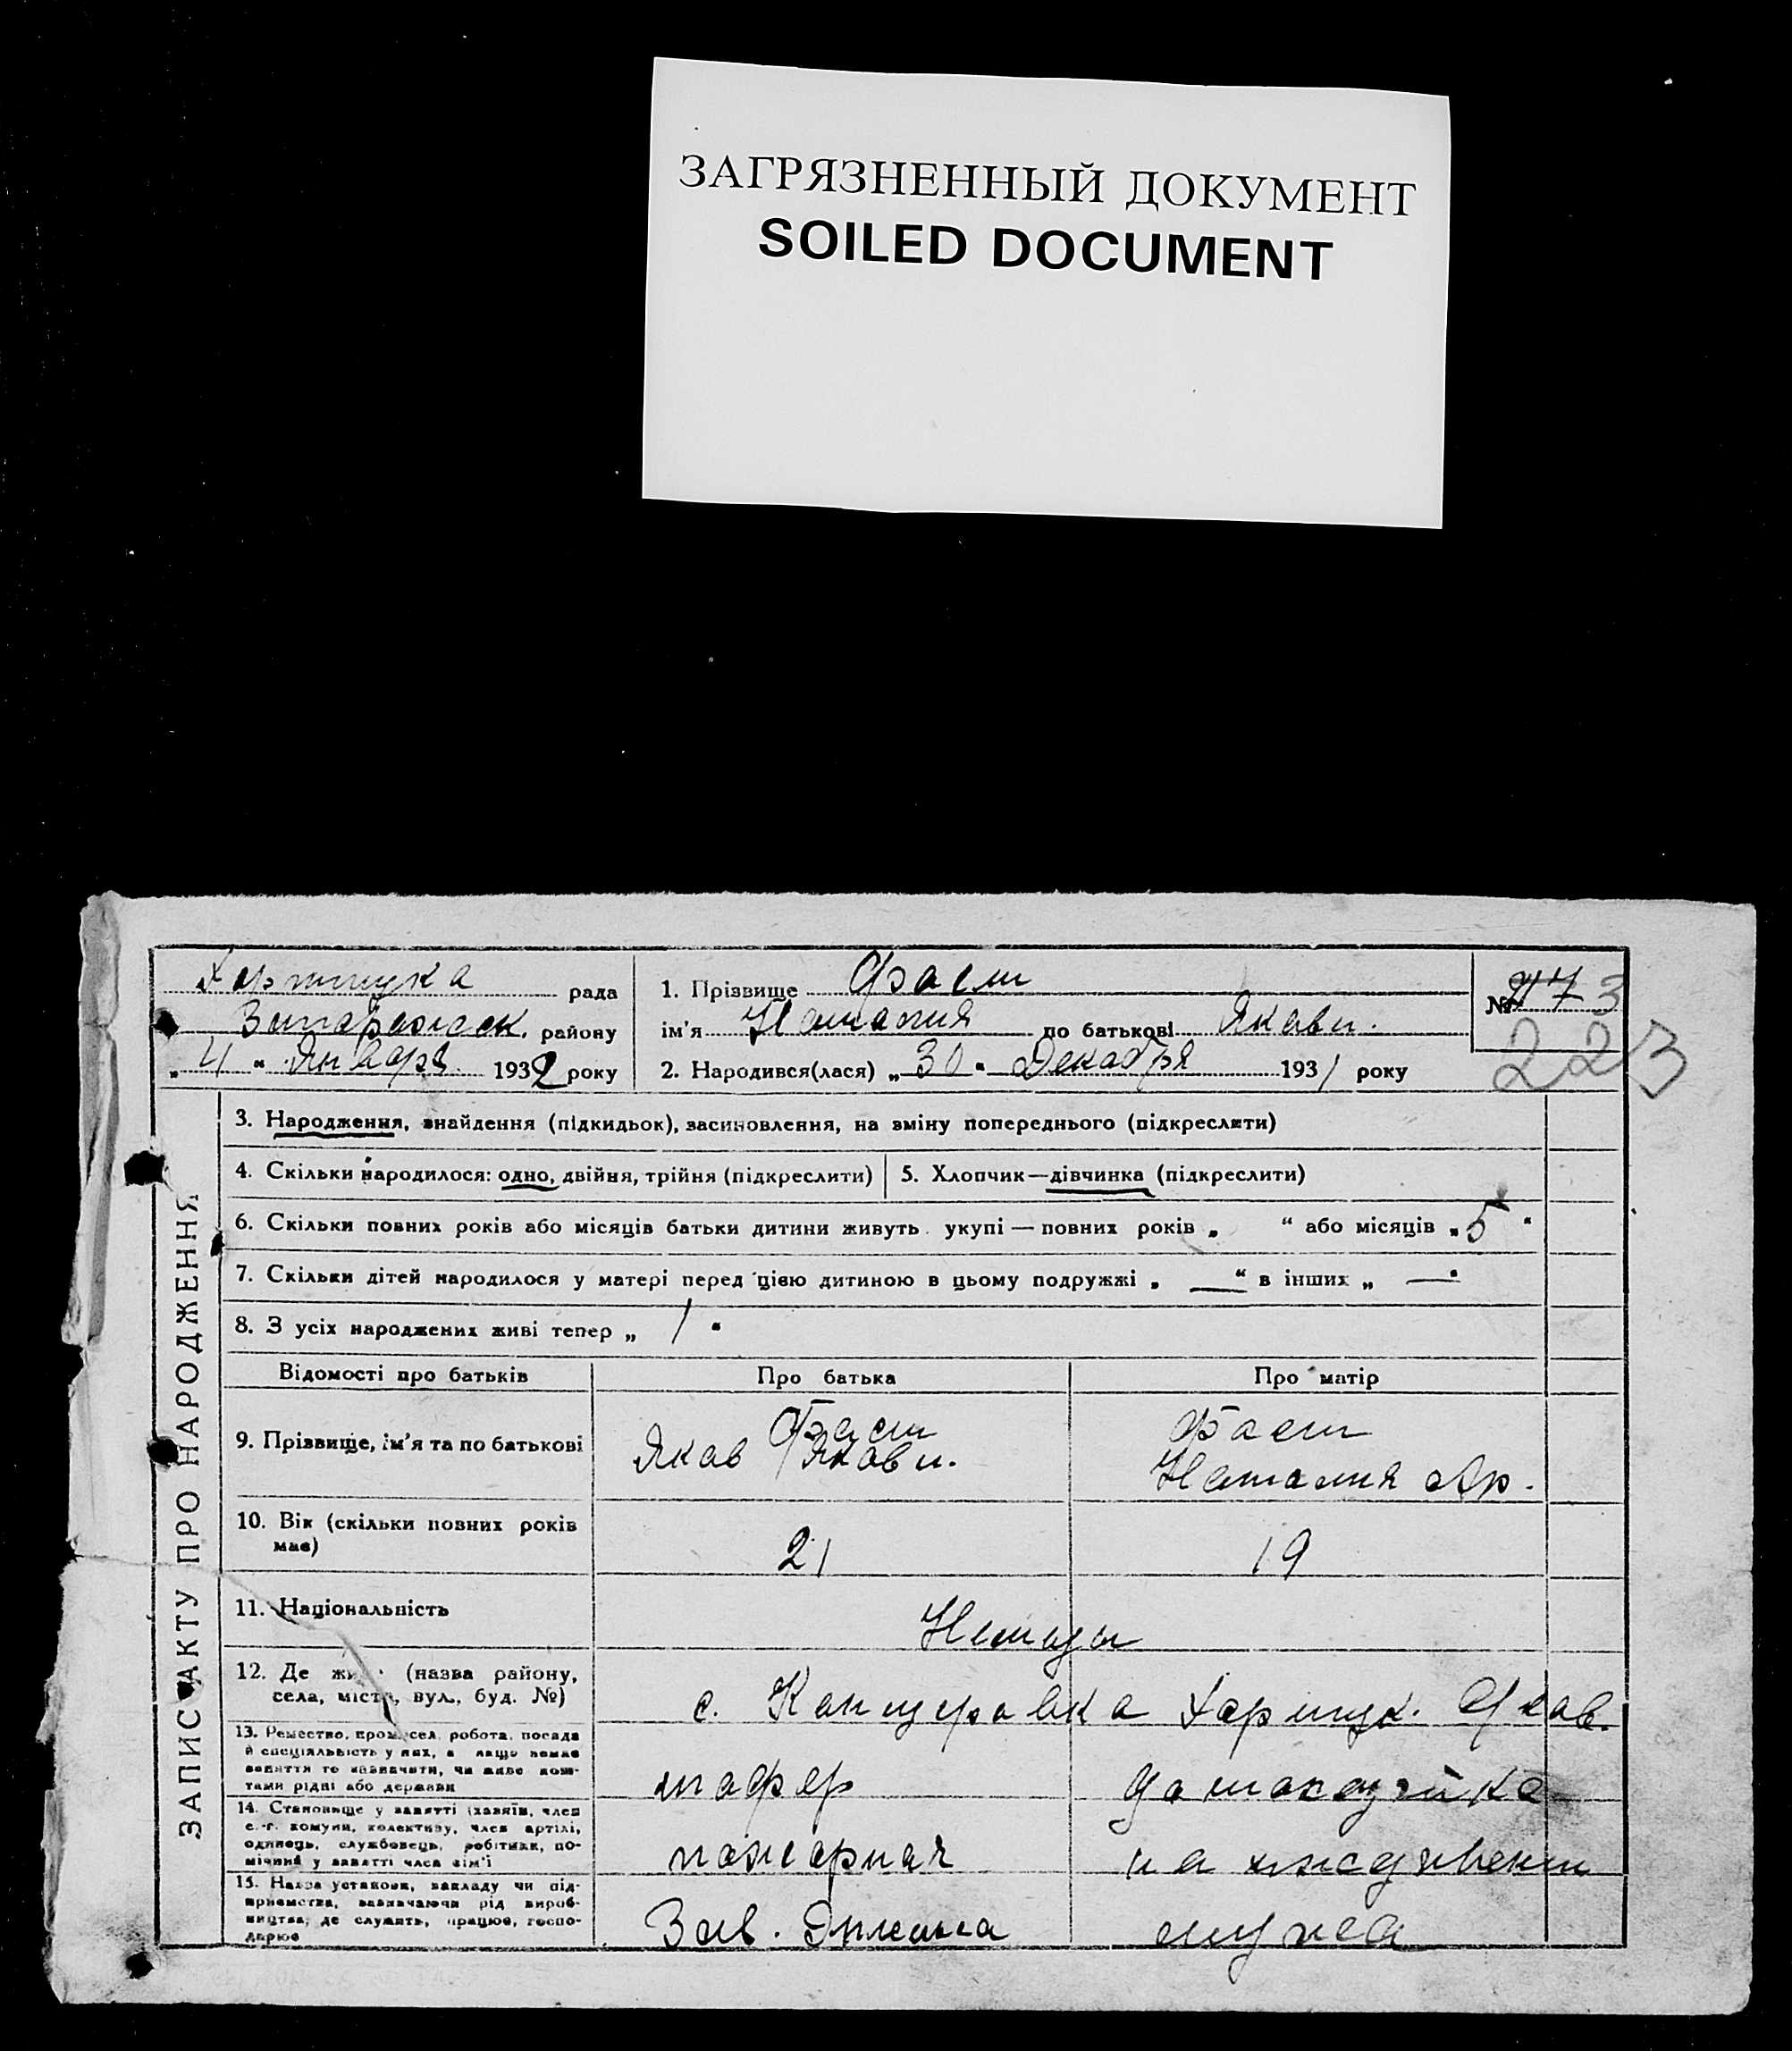 ЗАГРЯЗНЕННЫЙ ДОКУМЕНТ
SOILED DOCUMENT
Хортицка рада
Запорожск. району
„ 4 “ Января 1932 року
1. Прізвище Фаст
ім'я Наталия по батькові Якавл.
2. Народився(лася) „ 30 “ Декабря 1931 року
№ 3
223
ЗАПИС АКТУ ПРО НАРОДЖЕННЯ
3. Народження, знайдення (підкидьок), засиновлення, на зміну попереднього (підкреслити)
4. Скільки народилося: одно, двійня, трійня (підкреслити)
5. Хлопчик—дівчинка (підкреслити)
6. Скільки повних років або місяців батьки дитини живуть укупі — повних років „ “ або місяців „ 5 “
7. Скільки дітей народилося у матері перед цією дитиною в цьому подружжі „ — “ в інших „ — “
8. З усіх народжених живі тепер „ 1 “
Відомості про батьків
Про батька
Про матір
9. Прізвище, ім'я та по батькові
Фаст
Якав Якавл.
Фаст
Наталия Абр.
10. Вік (скільки повних років має)
21
19
11. Національність
Немцы
12. Де жи (назва району,
села, міста, вул., буд. №)
с. Канцеровка Хортицк.
13. Ремество, промисел, робота, посада
й спеціяльність у них, а якщо немає
заняття то визначити, чи живе кош-
тами рідні або держави
шафер
домохозяйка
14. Становище у занятті (хазяїн, член
с.-г. комуни, колективу, член артілі,
одинець, службовець, робітник, по-
мічний у занятті член сім'ї
пожарная
на иждивении
15. Назва установи, закладу чи під-
приємства, зазначаючи рід вироб-
ництва, де служить, працює, госпо-
дарює
Зав.
мужа